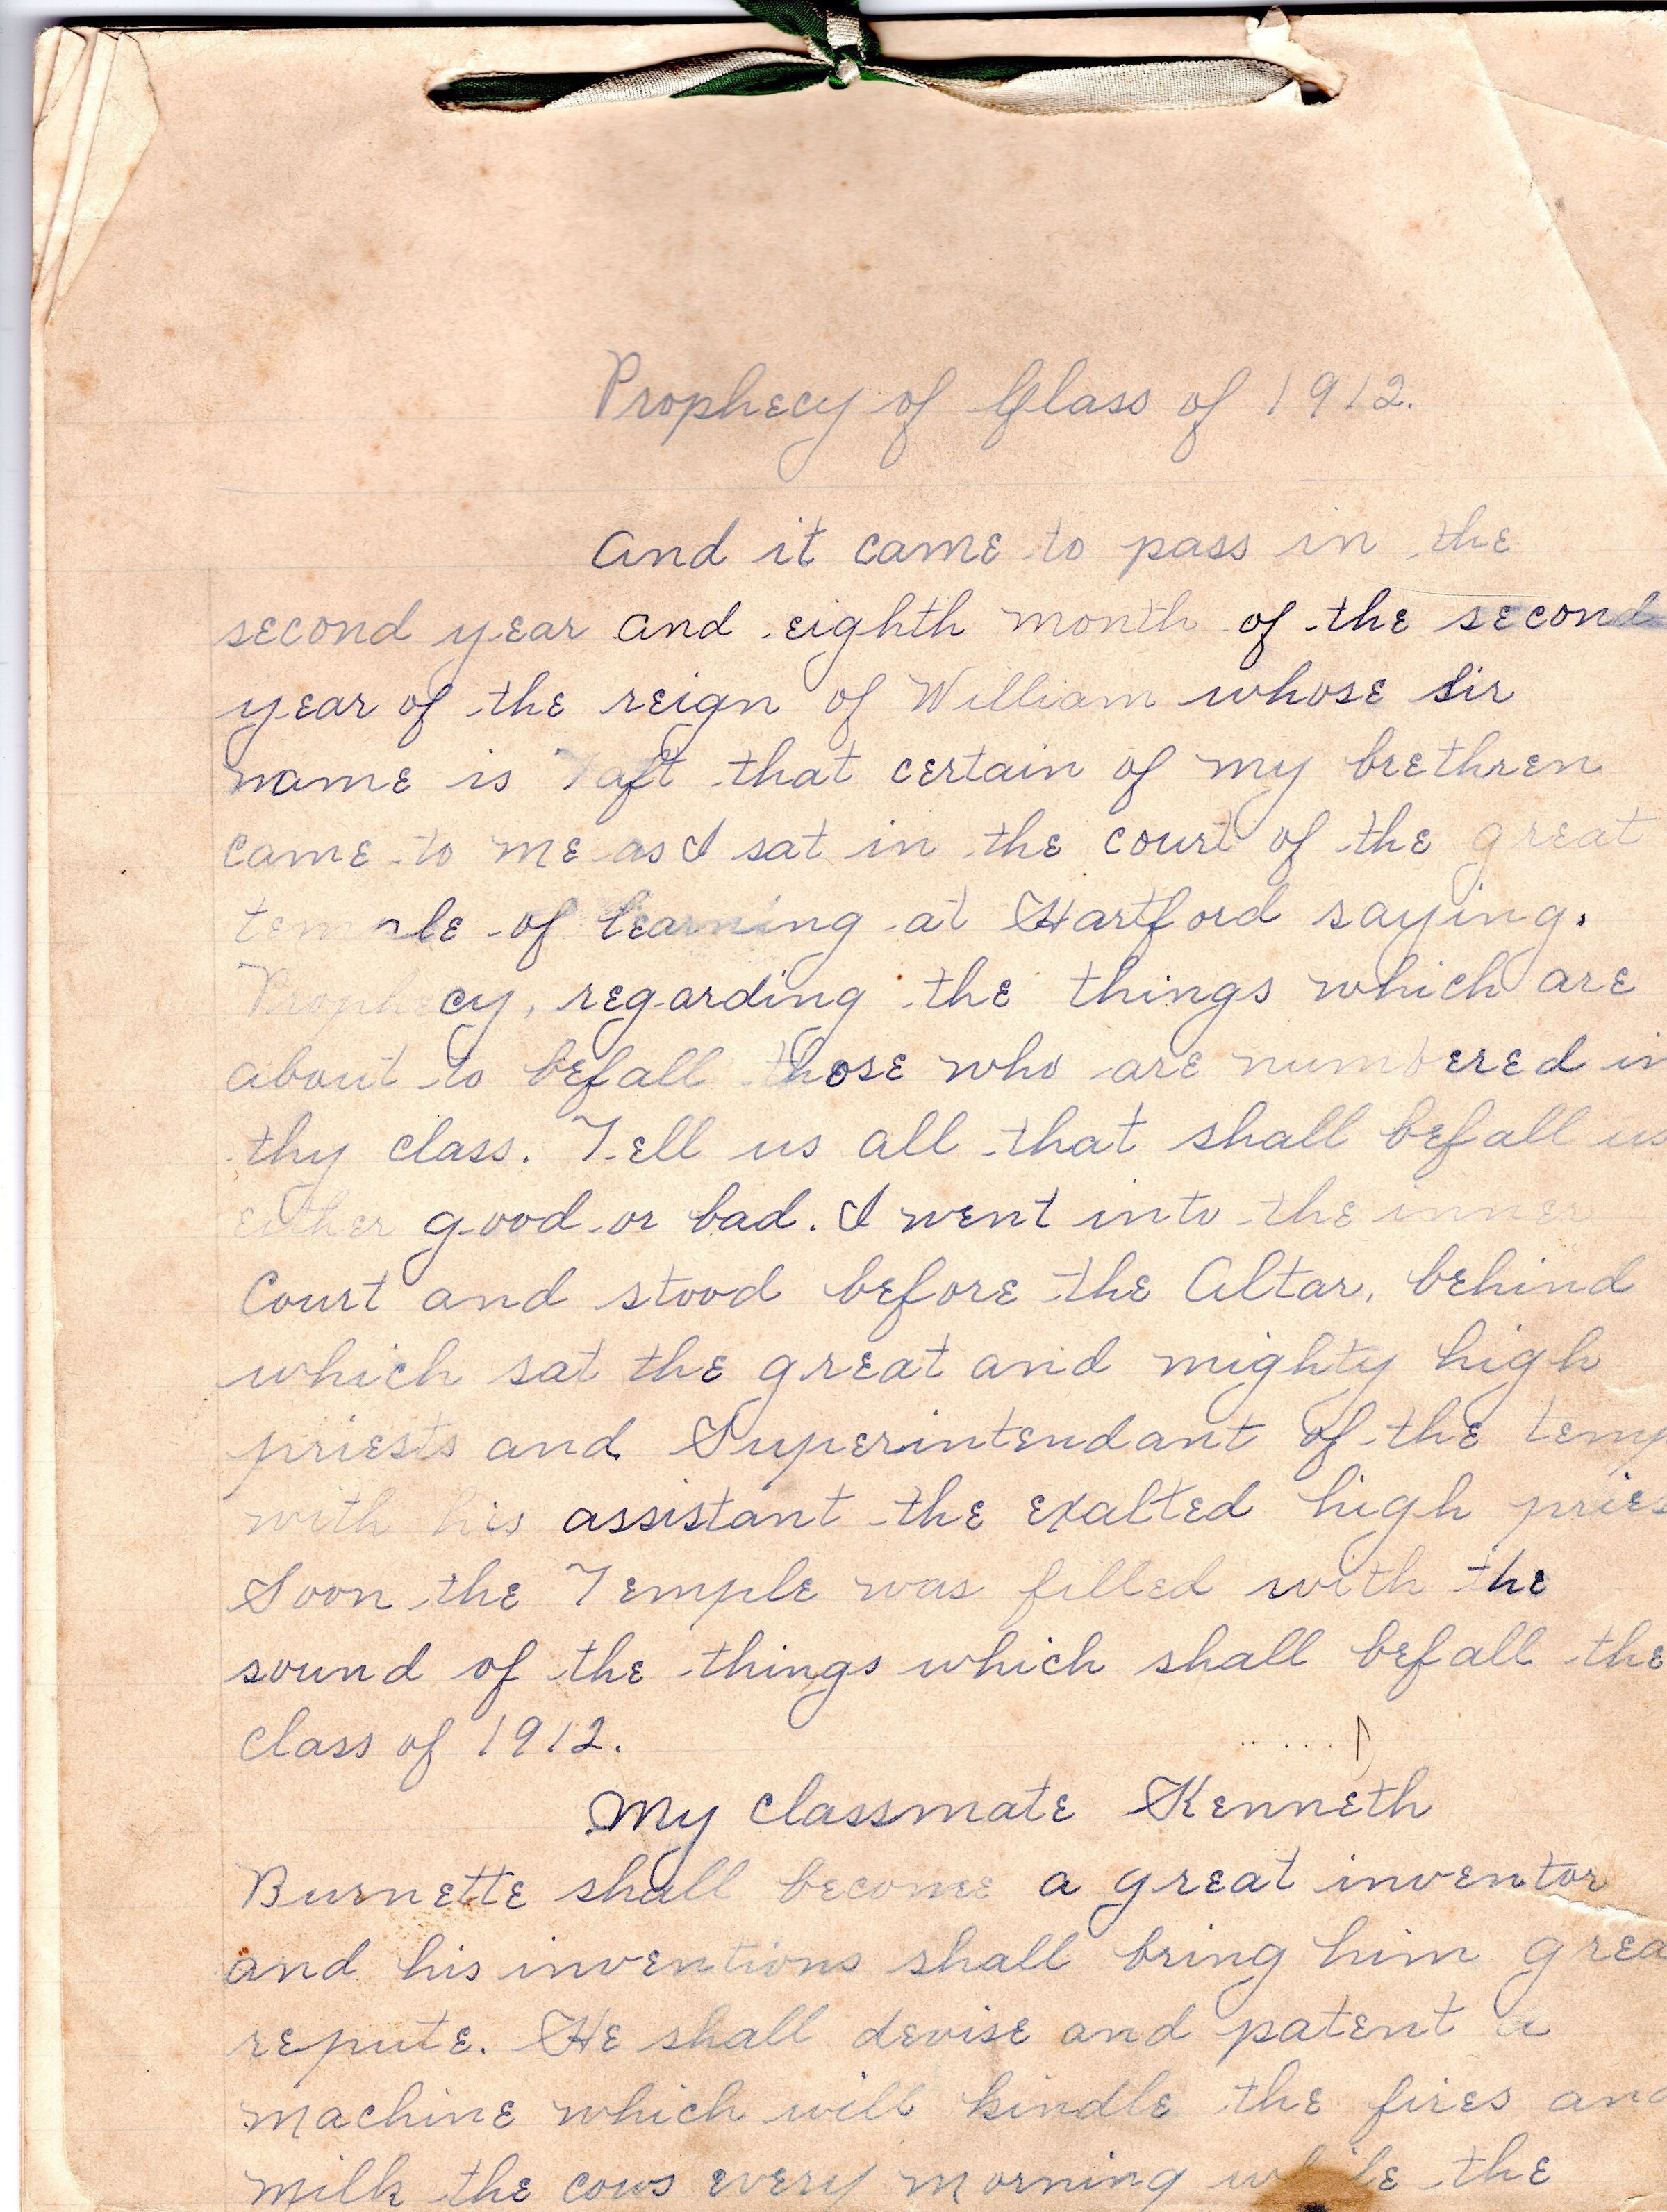 Prophecy of Class of 1912.
And it came to pass in the
second year and eighth month of the second
year of the reign of William whose sir
name is Taft that certain of my brethren
came to me as I sat in the court of the great
temple of learning at Hartford saying.
Prophecy, regarding the things which are
about to befall those who are numbered in
thy class. Tell us all that shall befall us
either good or bad. I went into the inner
Court and stood before the Altar, behind
which sat the great and mighty high
priests and Superintendant of the temp
with his assistant the exalted high pries
Soon the Temple was filled with the
sound of the things which shall befall the
class of 1912.
My classmate Kenneth
Burnette shall become a great inventor
and his inventions shall bring him grea
repute. He shall devise and patent a
machine which will kindle the fires and
milk the cows every morning while the